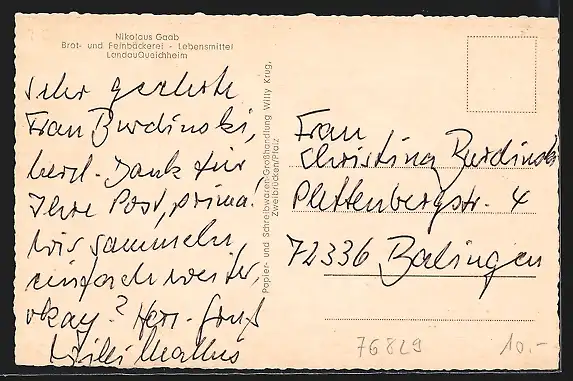 Nikolaus Gaab
Brot- und Feinbäckerei - Lebensmittel
LandauQueichheim
Sehr geehrte
Frau Burdinski,
herzl. Dank für
Ihre Post, prima.
Wir sammeln
einfach weiter,
okay? Herz. Gruß
Willi Mathus
Papier- und Schreibwaren-Großhandlung Willy Krug,
Zweibrücken/Pfalz
Frau
Christina Burdinski
Plettenbergstr. 4
72336 Balingen
76829
10.-